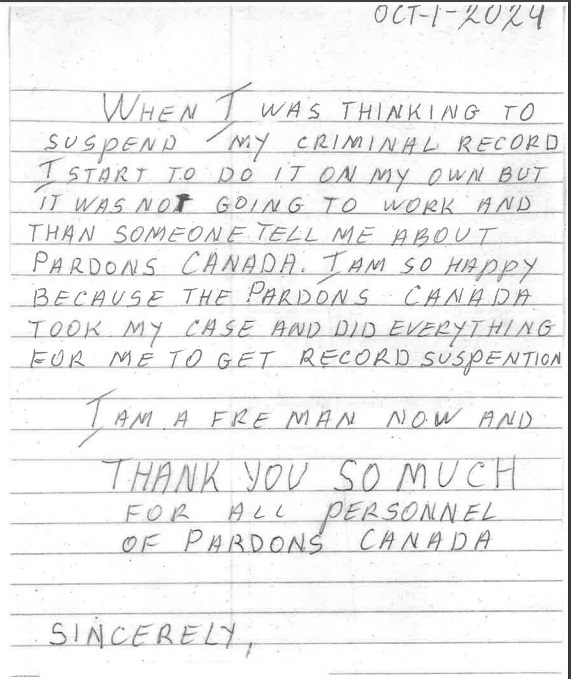 OCT-1-2024
WHEN I WAS THINKING TO
SUSPEND MY CRIMINAL RECORD
I START TO DO IT ON MY OWN BUT
IT WAS NOT GOING TO WORK AND
THAN SOMEONE TELL ME ABOUT
PARDONS CANADA. I AM SO HAPPY
BECAUSE THE PARDONS CANADA
TOOK MY CASE AND DID EVERYTHING
FOR ME TO GET RECORD SUSPENTION
I AM A FRE MAN NOW AND
THANK YOU SO MUCH
FOR ALL PERSONNEL
OF PARDONS CANADA
SINCERELY,